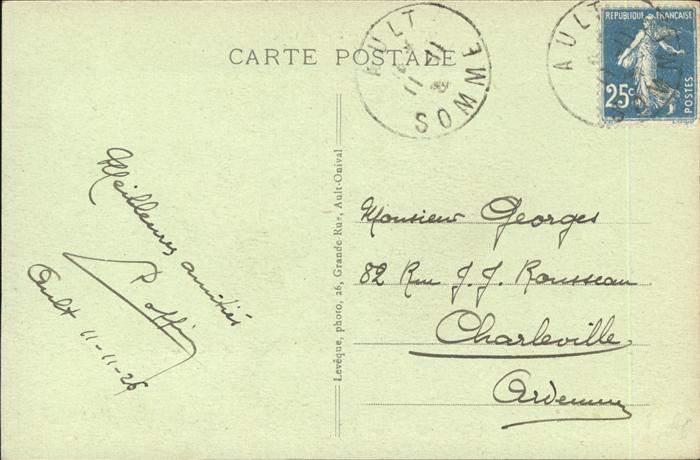 CARTE POSTALE
AULT
SOMME
11
11
AULT
SOMME
REPUBLIQUE FRANÇAISE
25c
POSTES
Meilleures amitiés
Ault 11-11-26
Levêque, photo, 26, Grande-Rue, Ault-Onival
Monsieur Georges
82 Rue J. J. Rousseau
Charleville
Ardennes